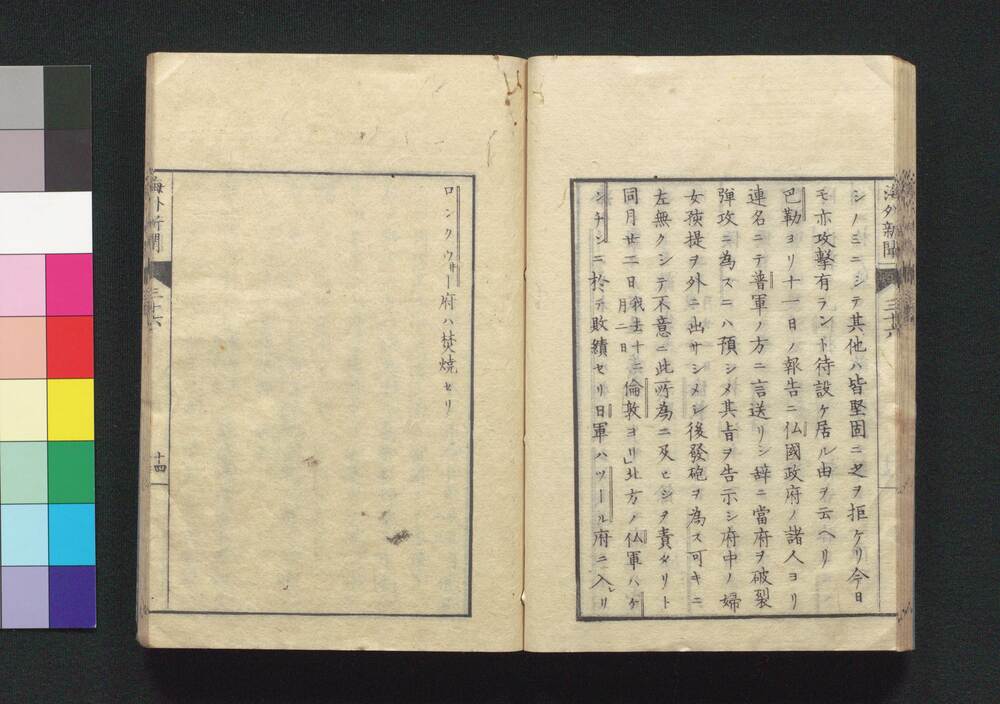 海外新聞
三十六
シノミニシテ其他ハ皆堅固ニ之ヲ拒ケリ今日
モ亦攻撃有ラント待設ケ居ル由ヲ云ヘリ
巴勒ヨリ十一日ノ報告ニ仏國政府ノ諸人ヨリ
連名ニテ普軍ノ方ニ言送リシ辞ニ當府ヲ破裂
弾攻ニ為スニハ預シメ其旨ヲ告示シ府中ノ婦
女孩提ヲ外ニ出サシメシ後發砲ヲ為ス可キニ
左無クシテ不意ニ此所為ニ及ヒシヲ責タリト
同月廿二日我去十二月二日倫敦ヨリ」北方ノ仏軍ハケ
シチンニ於テ敗績セリ日軍ハツール府ニ入レリ
ロンクウ井ー府ハ焚焼セリ
海外新聞
三十六
十四